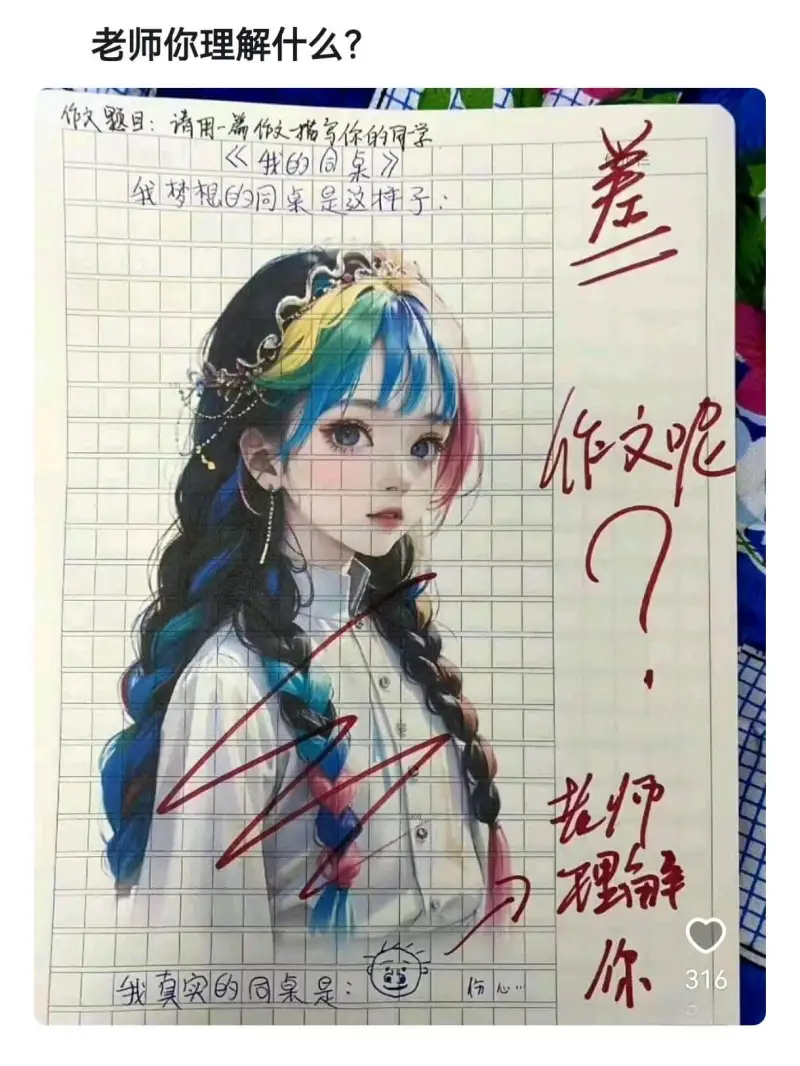 老师你理解什么?
作文题目：请用一篇作文描写你的同学
《我的同桌》
我梦想的同桌是这种子：
差
作文呢
?
老师
理解
你
我真实的同桌是：
伤心…
316